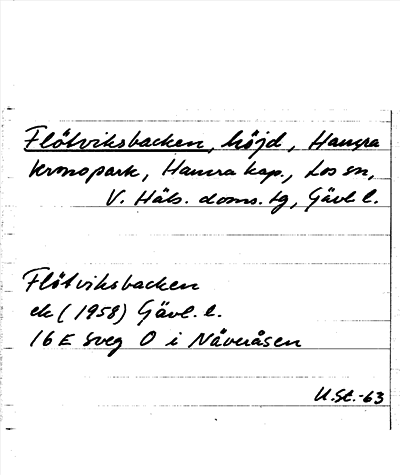 Flötviksbacken, höjd, Hamra
kronopark, Hamra kap., Los sn,
V. Häls. doms. tg, Gävl. l.
Flötviksbacken
ek (1958) Gävl. l.
16 E Sveg O i Nåveråsen
U.St.-63